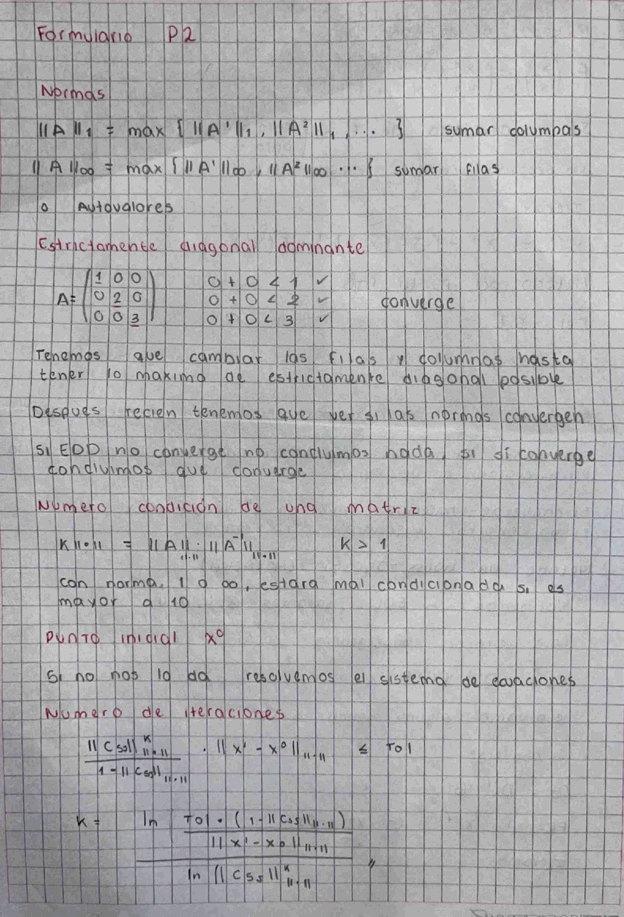 Formulario P2
Normas
||A||₁ = max { ||A¹||₁, ||A²||₁, ... } sumar columnas
||A||∞ = max { ||A¹||∞, ||A²||∞ ... } sumar filas
o Autovalores
Estrictamente diagonal dominante
A = (1 0 0 0 + 0 < 1 ✓
0 2 0 0 + 0 < 2 ✓ converge
0 0 3) 0 + 0 < 3 ✓
Tenemos que cambiar las filas y columnas hasta
tener lo maximo de estrictamente diagonal posible
Despues recien tenemos que ver si las normas convergen
Si EDD no converge no concluimos nada, si si converge
concluimos que converge
Numero condición de una matriz
K||•|| = ||A||_||·|| · ||A⁻¹||_||·|| K > 1
con norma 1 o ∞, estara mal condicionada si es
mayor a 10
Punto inicial x⁰
Si no nos lo da resolvemos el sistema de ecuaciones
Numero de iteraciones
||Csol||ᴷ_||·|| / (1 - ||Csol||_||·||) · ||x¹ - x⁰||_||·|| ≤ Tol
K = ln (Tol • (1 - ||Css||_||·||) / ||x¹ - x₀||_||·||) / ln ||Css||ᴷ_||·|| //